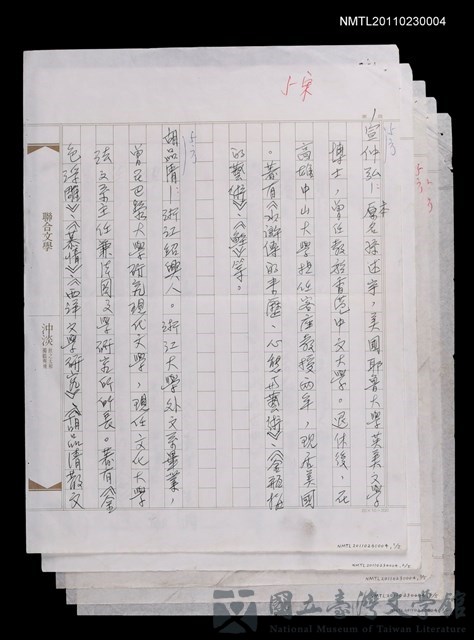 NMTL20110230004
5/宋
宣仲弘：原名孫述宇，美國耶魯大學英美文學
博士，曾任教於香港中文大學。退休後，在
高雄中山大學擔任客座教授兩年，現居美國
。著有《水滸傳的來歷、心態與藝術》、《金瓶梅
的藝術》、《鮮》等。
胡品清：浙江紹興人。浙江大學外文系畢業，
曾在巴黎大學研究現代文學，現任文化大學
法文系主任兼法國文學研究所所長。著有《金
色浮雕》、《慕情》、《西洋文學研究》、《胡品清散文
聯合文學
NMTL20110230004
國立臺灣文學館
National Museum of Taiwan Literature